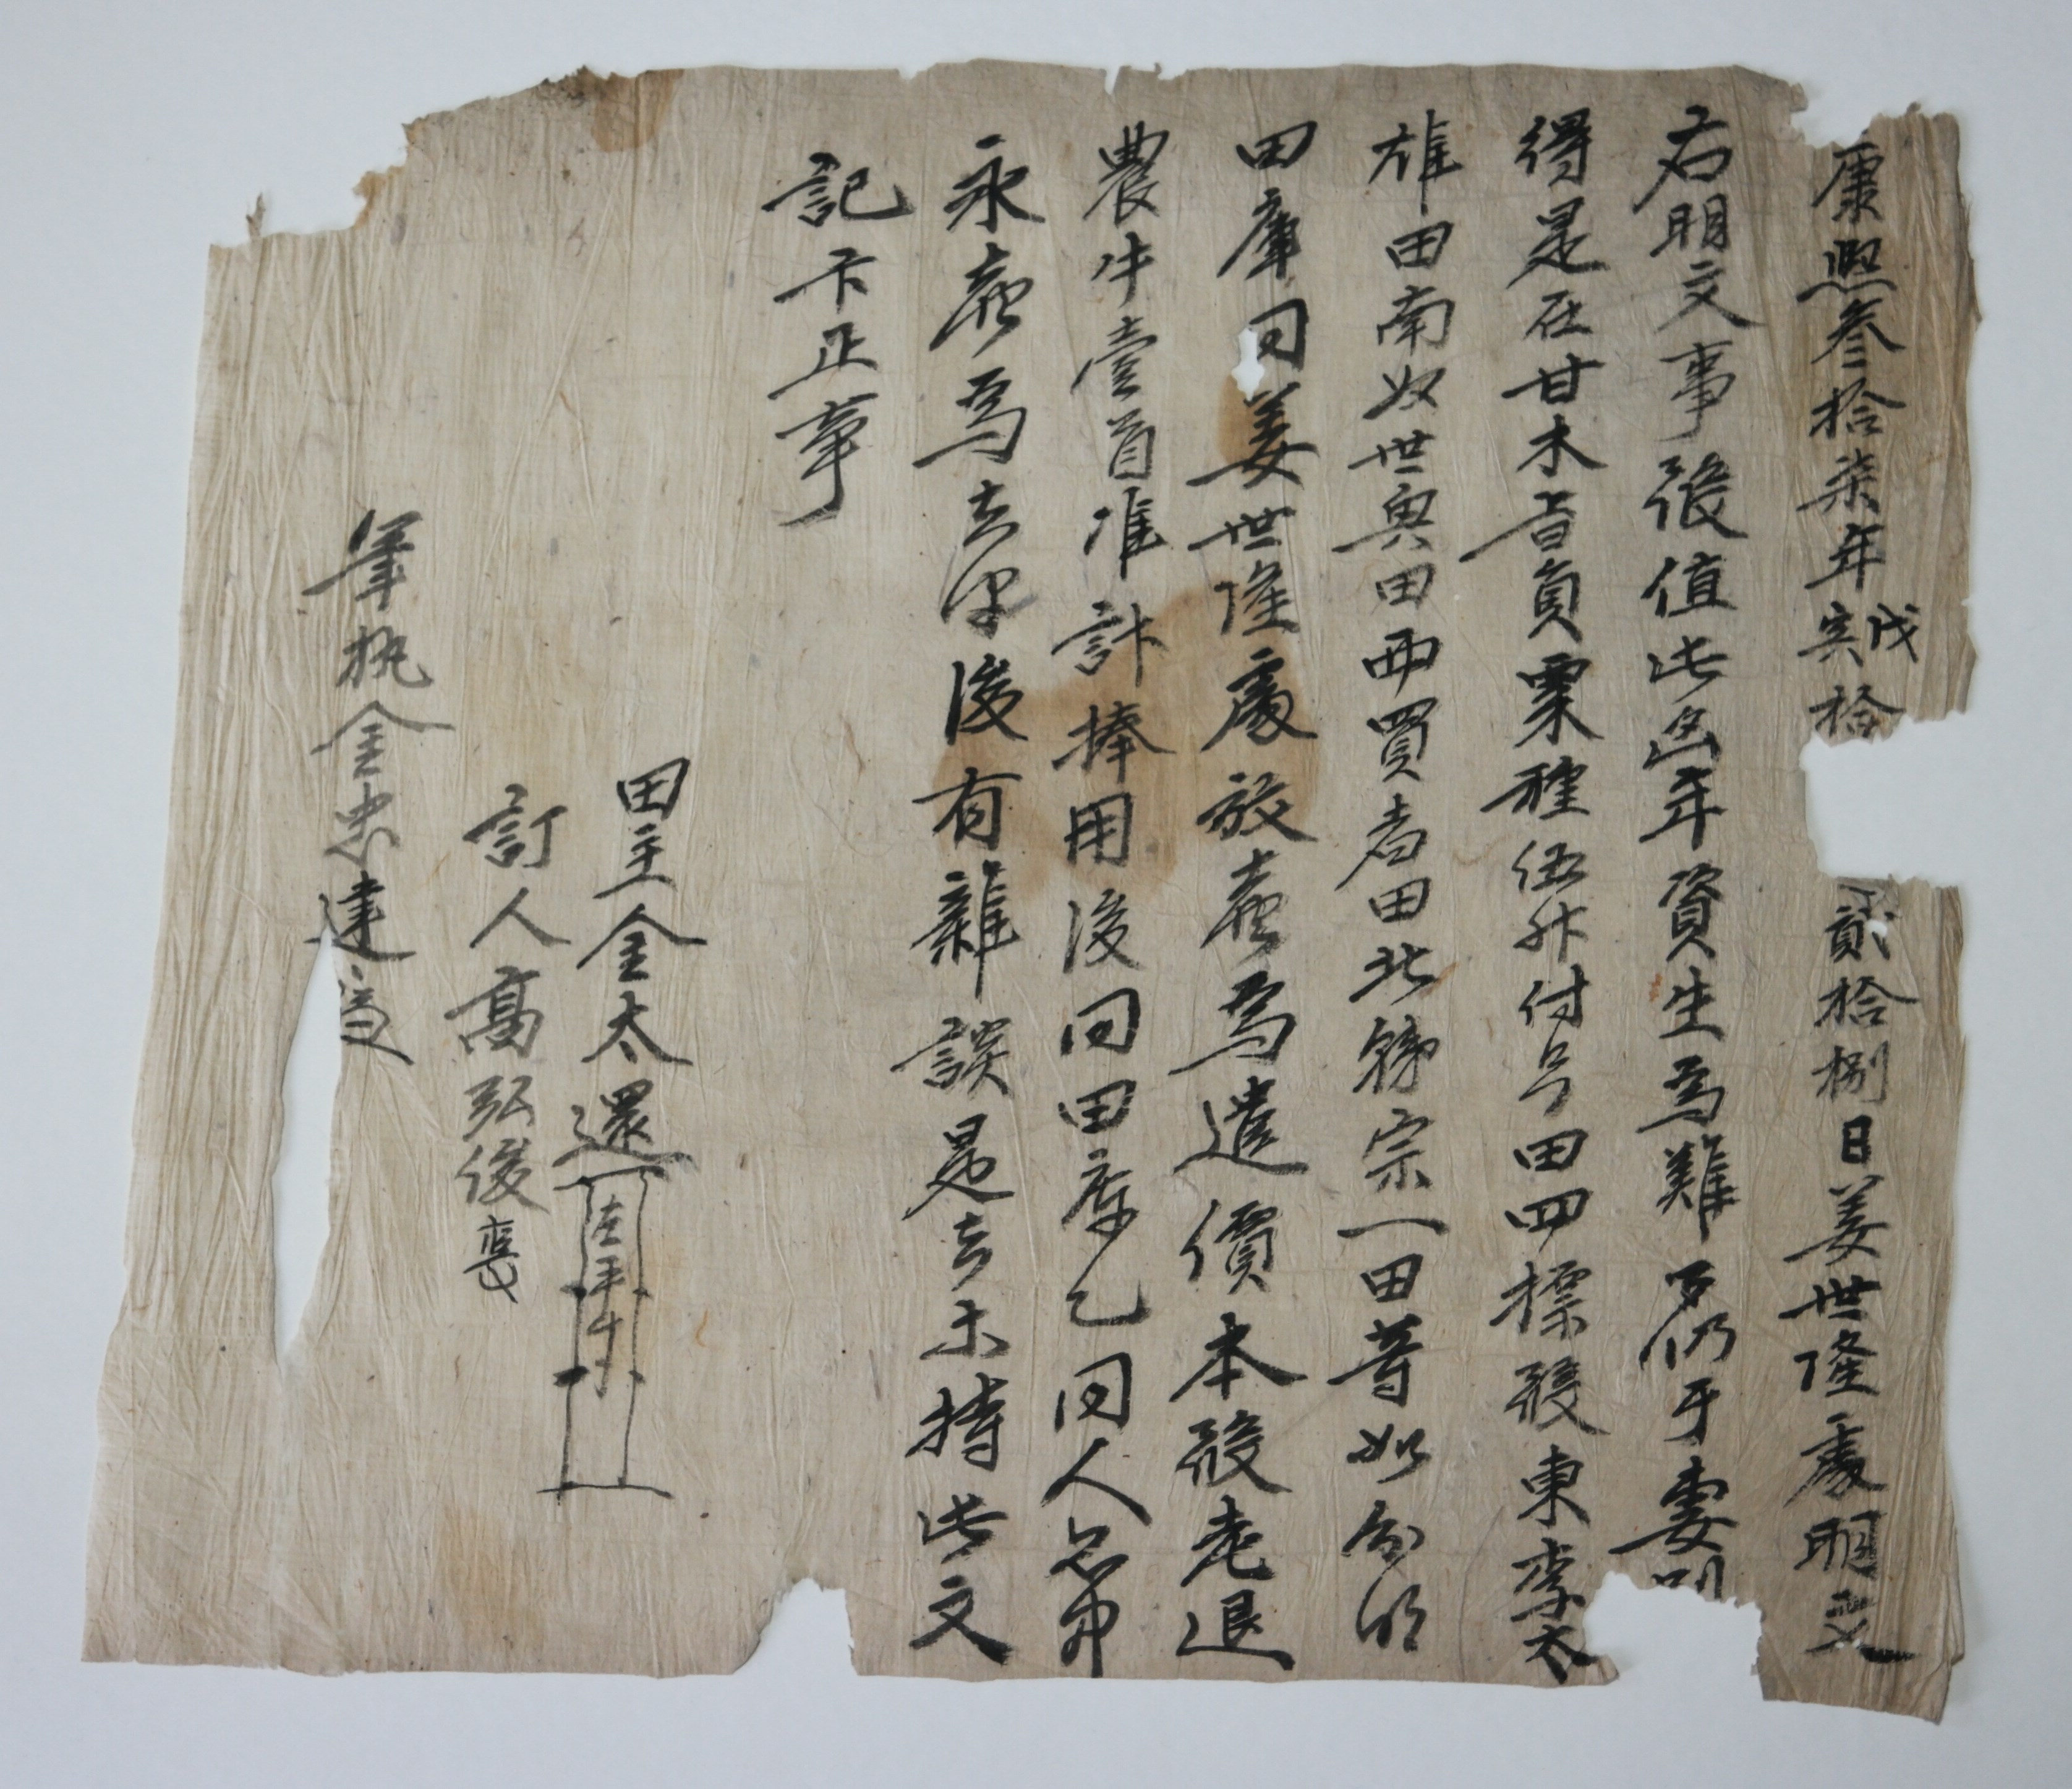 康熙叁拾柒年戊寅拾 貳拾捌日姜世隆處明文
右明文事段値此凶年資生爲難乙仍于妻
得是在甘木音員粟種伍升付只田四標段東李太
雄田南奴世輿田西買者田北 宗一田等如
田庫同姜世隆處放賣爲遣價本段 退
農牛壹首准計捧用後同田庫乙同人
永賣爲去乎後有雜談是去等持此文
記卞正事
田主金太還 左手寸
訂人高弘俊
筆執金忠達